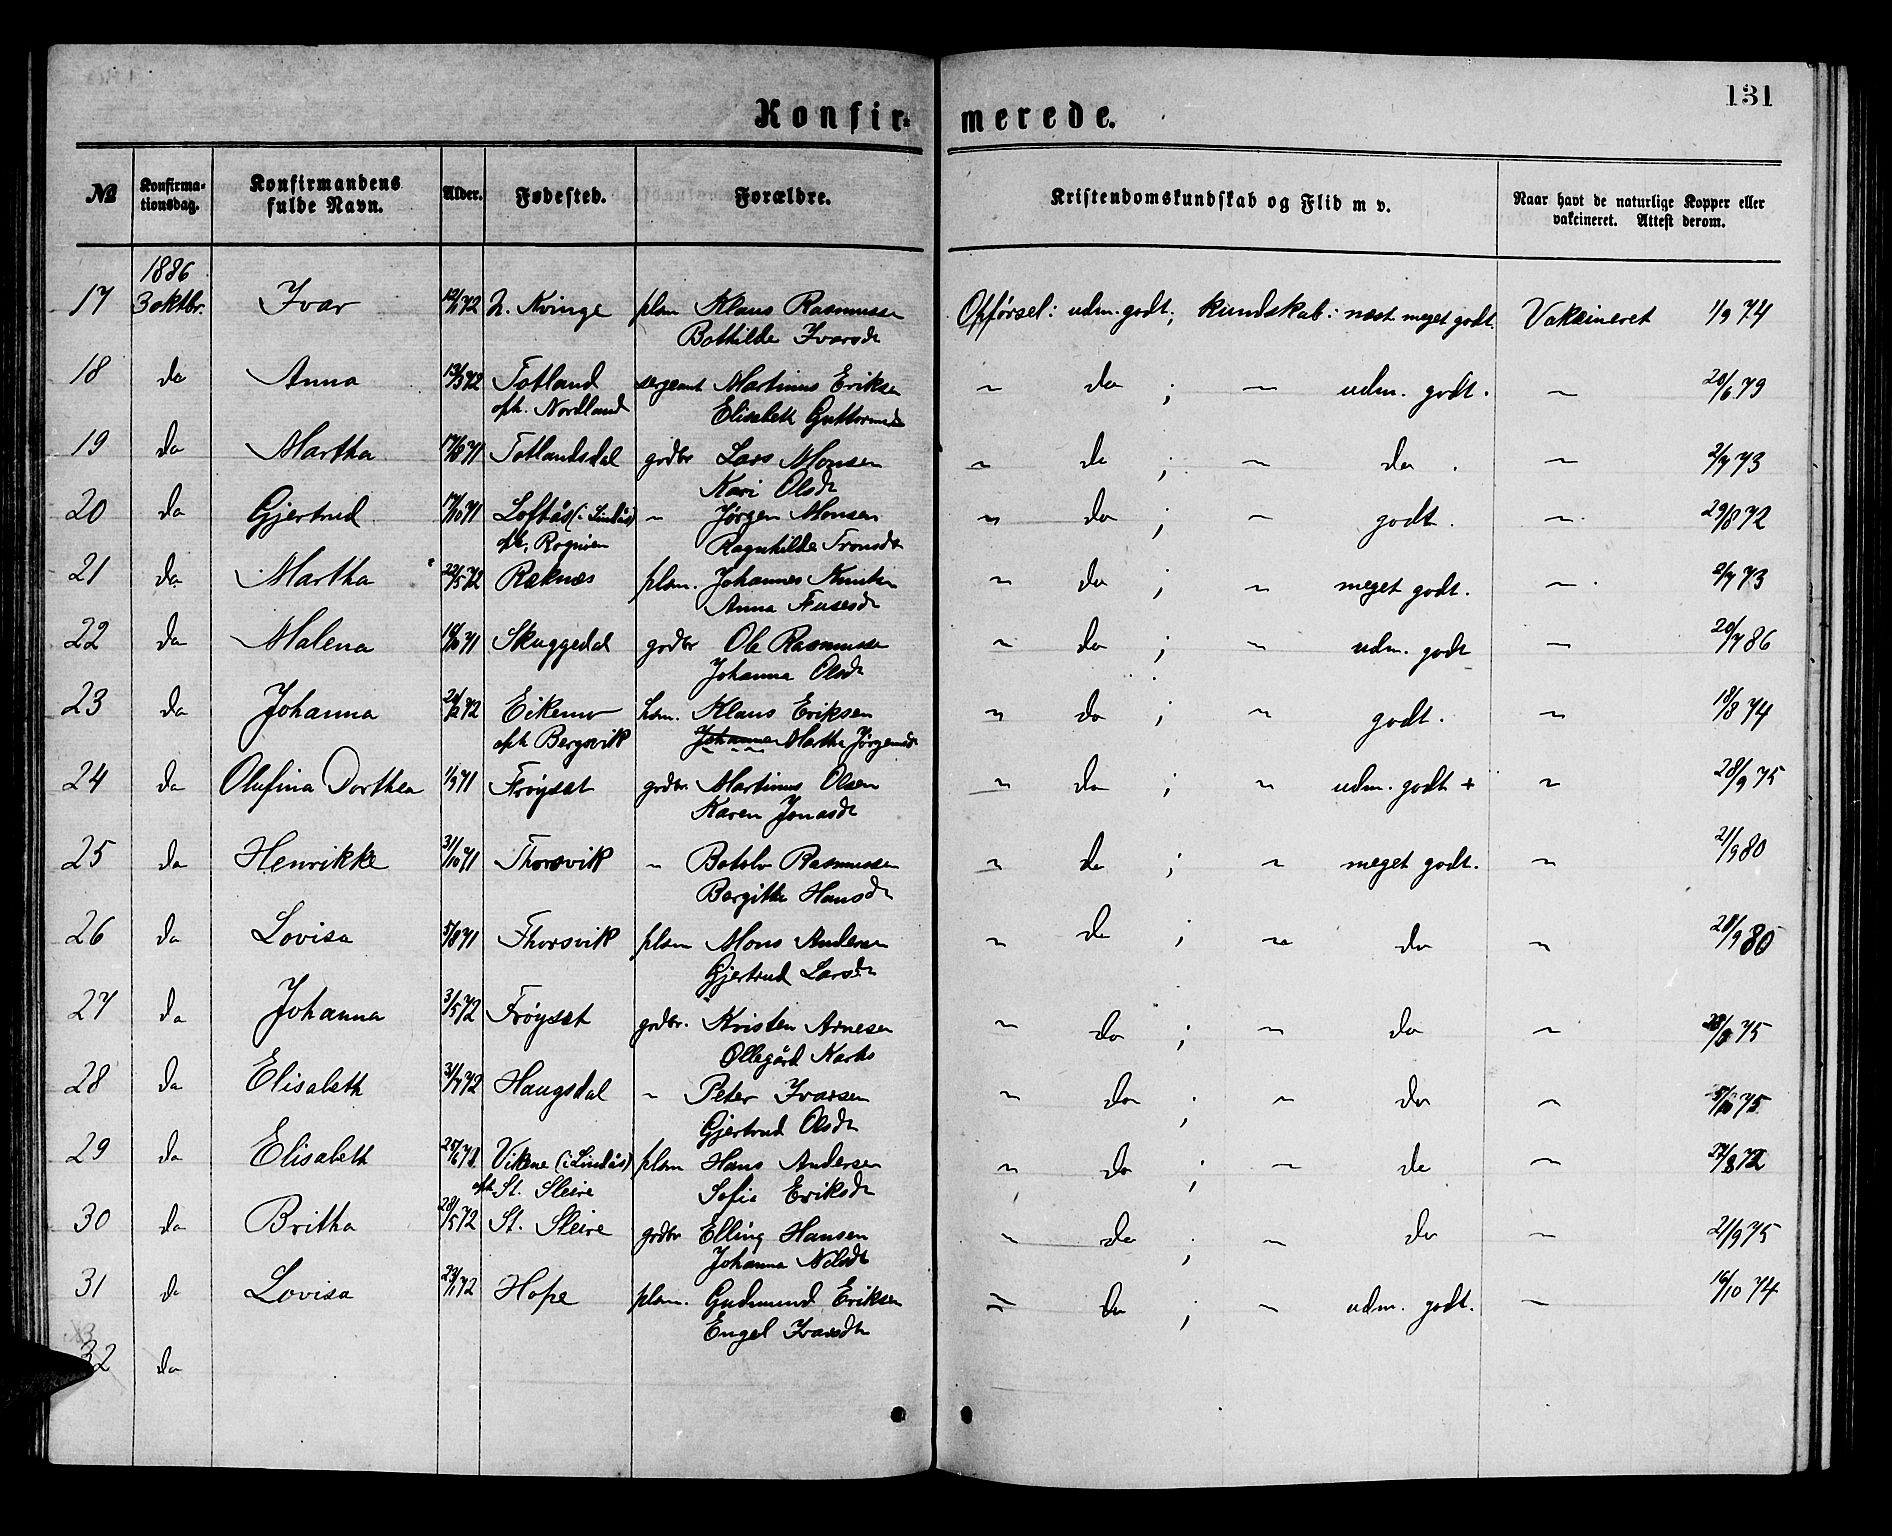 131
Konfir- merede.
№ Konfirma-tionsdag. Konfirmandens fulde Navn. Alder. Fødested. Forældre. Kristendomskundskab og Flid m v. Naar havt de naturlige Kopper eller vakcineret. Attest derom.
1886
17 3 oktbr. Ivar 72 N. Kvinge plsm Klaus Rasmussen Opførsel: udm. godt; kundskab: næst meget godt. Vakcineret 1/9 74
Bothilde Ivarsdr
18 do Anna 13/3 72 Totland sergeant Martinus Eriksen ~ do ; ~ udm. godt. ~ 20/6 79
oph. Nordland Elisabeth Guttormsdr
19 do Martha 17/8 71 Totlandsdal grdbr Lars Monsen ~ do ; ~ do. ~ 2/7 73
Kari Olsdr
20 do Gjertrud 17/10 71 Loftås (i Lindås) ~ Jørgen Monsen ~ do ; ~ godt. ~ 29/8 72
oph. Rognien Ragnhilde Tronsdr
21 do Martha 22/5 72 Reknes plsm. Johannes Knutsen ~ do ; ~ meget godt. ~ 2/7 73
Anna Fusesdr
22 do Malena 71 Skuggedal grdbr Ole Rasmussen ~ do ; ~ udm. godt ~ 20/7 86
Johanna Olsdr
23 do Johanna 72 Eikemo hsm. Klaus Eriksen ~ do ; ~ godt. ~ 18/8 74
oph Bergsvik Johanna Martha Jørgensdr
24 do Olufina Dorthea 1/9 71 Frøyset grdbr. Martinus Olsen ~ do ; ~ udm. godt + ~ 28/9 75
Karen Jonasdr
25 do Henrikke 31/10 71 Thorsvik ~ Botolv Rasmussen ~ do ; ~ meget godt. ~ 21/9 80
Bergitte Hansdr
26 do Lovisa 5/8 71 Thorsvik plsm Mons Andersen ~ do ; ~ do ~ 28/9 80
Gjertrud Larsdr
27 do Johanna 3/5 72 Frøyset grdbr. Kristen Arnesen ~ do ; ~ do ~ 75
Ollegård
28 do Elisabeth 31/7 72 Haugsdal ~ Peter Ivarsen ~ do ; ~ do ~ 5/10 75
Gjertrud Olsdr
29 do Elisabeth Vikene (i Lindås) plsm Hans Andersen ~ do ; ~ do ~ 27/8 72
oph St. Sleire Sofie Eriksdr
30 do Britha 28/5 72 St. Sleire grdbr Elling Hansen ~ do ; ~ do ~ 21/9 75
Johanna Nilsdr
31 do Lovisa 23/1 72 Hope plsm. Gudmund Eriksen ~ do ; ~ udm. godt. ~ 16/10 74
Engel Ivarsdr
32 do